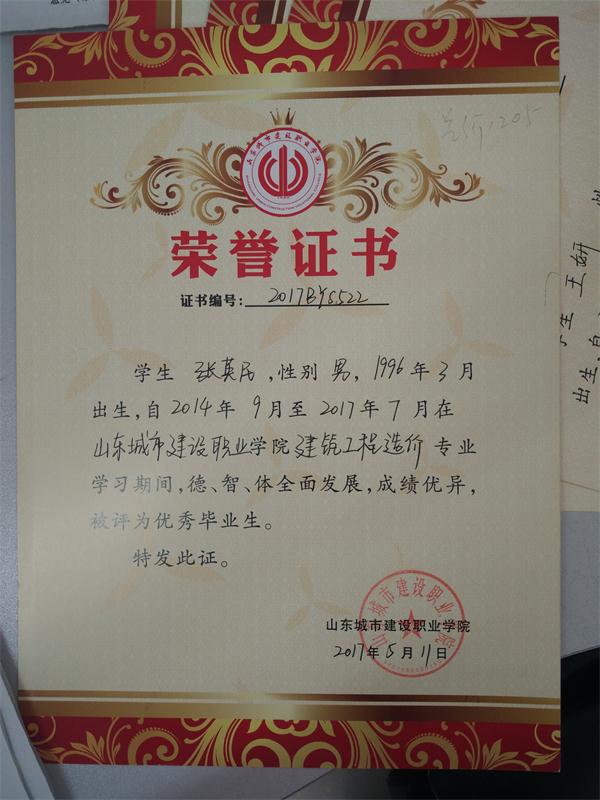 山东城市建设职业学院
荣誉证书
证书编号：2017BYS522
造价1205
学生 张英民，性别 男，1996年3月
出生，自2014年 9月至 2017年7月在
山东城市建设职业学院建筑工程造价 专业
学习期间，德、智、体全面发展，成绩优异，
被评为优秀毕业生。
特发此证。
山东城市建设职业学院
2017年5月11日
山东城市建设职业学院
学生 王妍
出生，自